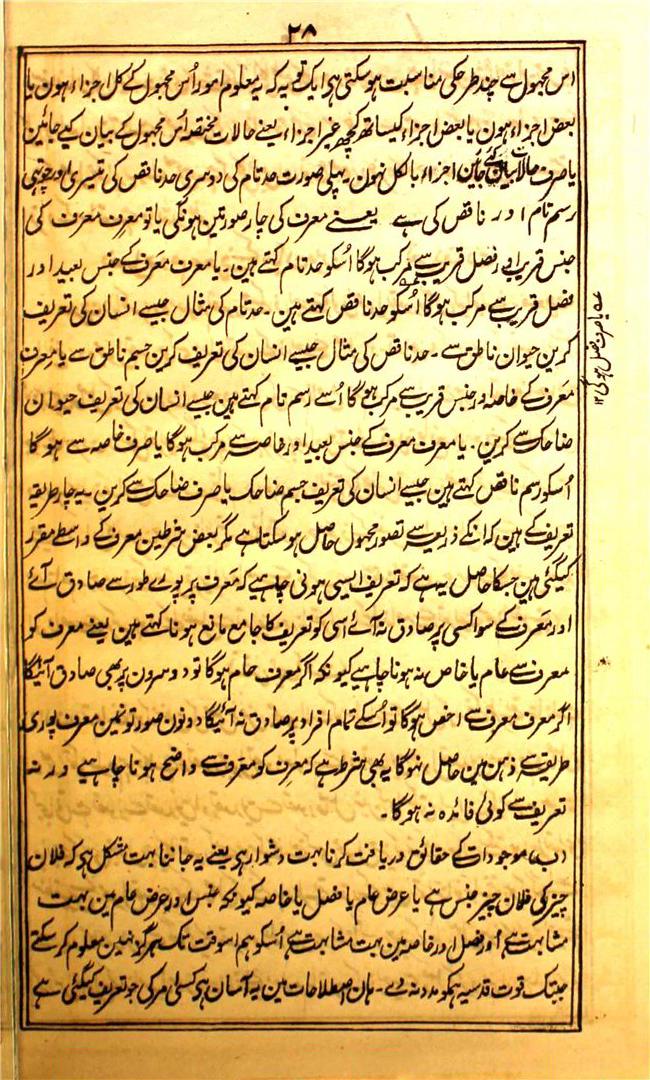 ۲۸
اس مجہول سے چند طرحکی مناسبت ہوسکتی ہی ایک تو یہ کہ یہ معلوم امور اُس مجہول کے کل اجزاء ہون یا
بعض اجزاء ہون یا بعض اجزاء کیساتھ کچھ غیر اجزاء یعنے حالات مختصہ اُس مجہول کے بیان کیے جائین
یا صرف حالات بیان کئے جائین اجزاء بالکل نہون۔ پہلی صورت حد تام کی دوسری حد ناقص کی تیسری اور چوتہی
رسم تام اور ناقص کی ہے یعنے معرف کی چار صورتین ہونگی یا تو معرِف معرَف کی
جنس قریب اور فصل قریب سے مرکب ہوگا اُسکو حد تام کہتے ہین۔ یا معرف معرَف کے جنس بعید اور
فصل قریب سے مرکب ہوگا اُسکو حد ناقص کہتے ہین۔ حد تام کی مثال جیسے انسان کی تعریف
کرین حیوان ناطق سے۔ حد ناقص کی مثال جیسے انسان کی تعریف کرین جسم ناطق سے یا معرِف
معَرف کے خاصہ اور جنس قریب سے مرکب ہوگا اُسے رسم تام کہتے ہین جیسے انسان کی تعریف حیوان
ضاحک سے کرین۔ یا معرف معرف کے جنس بعید اور خاصہ سے مرکب ہوگا یا صرف خاصہ سے ہوگا
اُسکو رسم ناقص کہتے ہین جیسے انسان کی تعریف جسم ضاحک یا صرف ضاحک سے کرین۔ یہ چار طریقہ
تعریف کے ہین کہ انکے ذریعہ سے تصور مجہول حاصل ہوسکتا ہے مگر بعض شرطین معرف کے واسطے مقرر
کیگئی ہین جسکا حاصل یہ ہے کہ تعریف ایسی ہونی چاہیے کہ معَرف پر پورے طور سے صادق آئے
اور معَرف کے سوا کسی پر صادق نہ آئے اسی کو تعریف کا جامع مانع ہونا کہتے ہین یعنے معرف کو
معرف سے عام یا خاص نہ ہونا چاہیے کیونکہ اگر معرف عام ہوگا تو دوسرون پر بھی صادق آئیگا
اگر معرف معرف سے اخص ہوگا تو اُسکے تمام افراد پر صادق نہ آئیگا دونون صورتونمین معرف پوری
طریقہ سے ذہن مین حاصل نہوگا یہ بھی شرط ہے کہ معرِف کو معَرف سے واضح ہونا چاہیے ورنہ
تعریف سے کوئی فائدہ نہ ہوگا۔
(ب) موجودات کے حقائق دریافت کرنا بہت دشوار ہی یعنے یہ جاننا بہت مشکل ہی کہ فلان
چیز کی فلان چیز جنس ہے یا عرض عام یا فصل یا خاصہ کیونکہ جنس اور عرض عام مین بہت
مشابہت ہے اور فصل اور خاصہ مین بہت مشابہت ہے اُسکو ہم اسوقت تک ہرگز نہین معلوم کرسکتے
جبتک قوت قدسیہ ہمکو مدد نہ دے۔ ہان اصطلاحات مین یہ آسان ہی کسلی مرکی جو تعریف کیگئی ہے
عہ یا صرف فصل ہوگی ۱۲